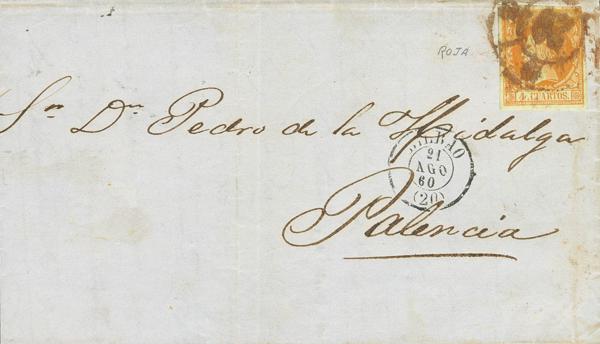 ROJA
4 CUARTOS.
Sr. Dn. Pedro de la Hidalga
BILBAO
21
AGO
60
(20)
Palencia